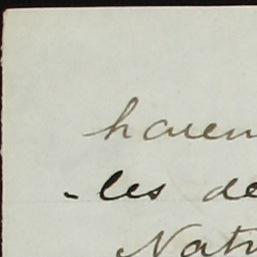 haven
-les de
Natu